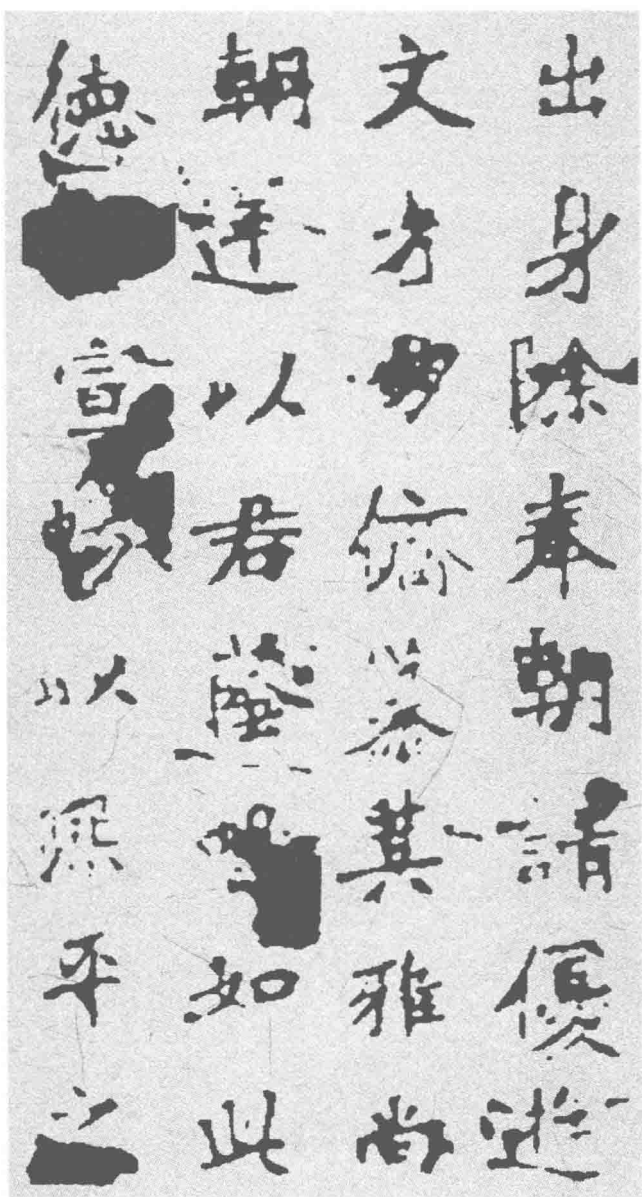 出身除奉朝請優遊
文朋儕慕其雅尚
朝廷以君蔭如此
德宣以熙平之